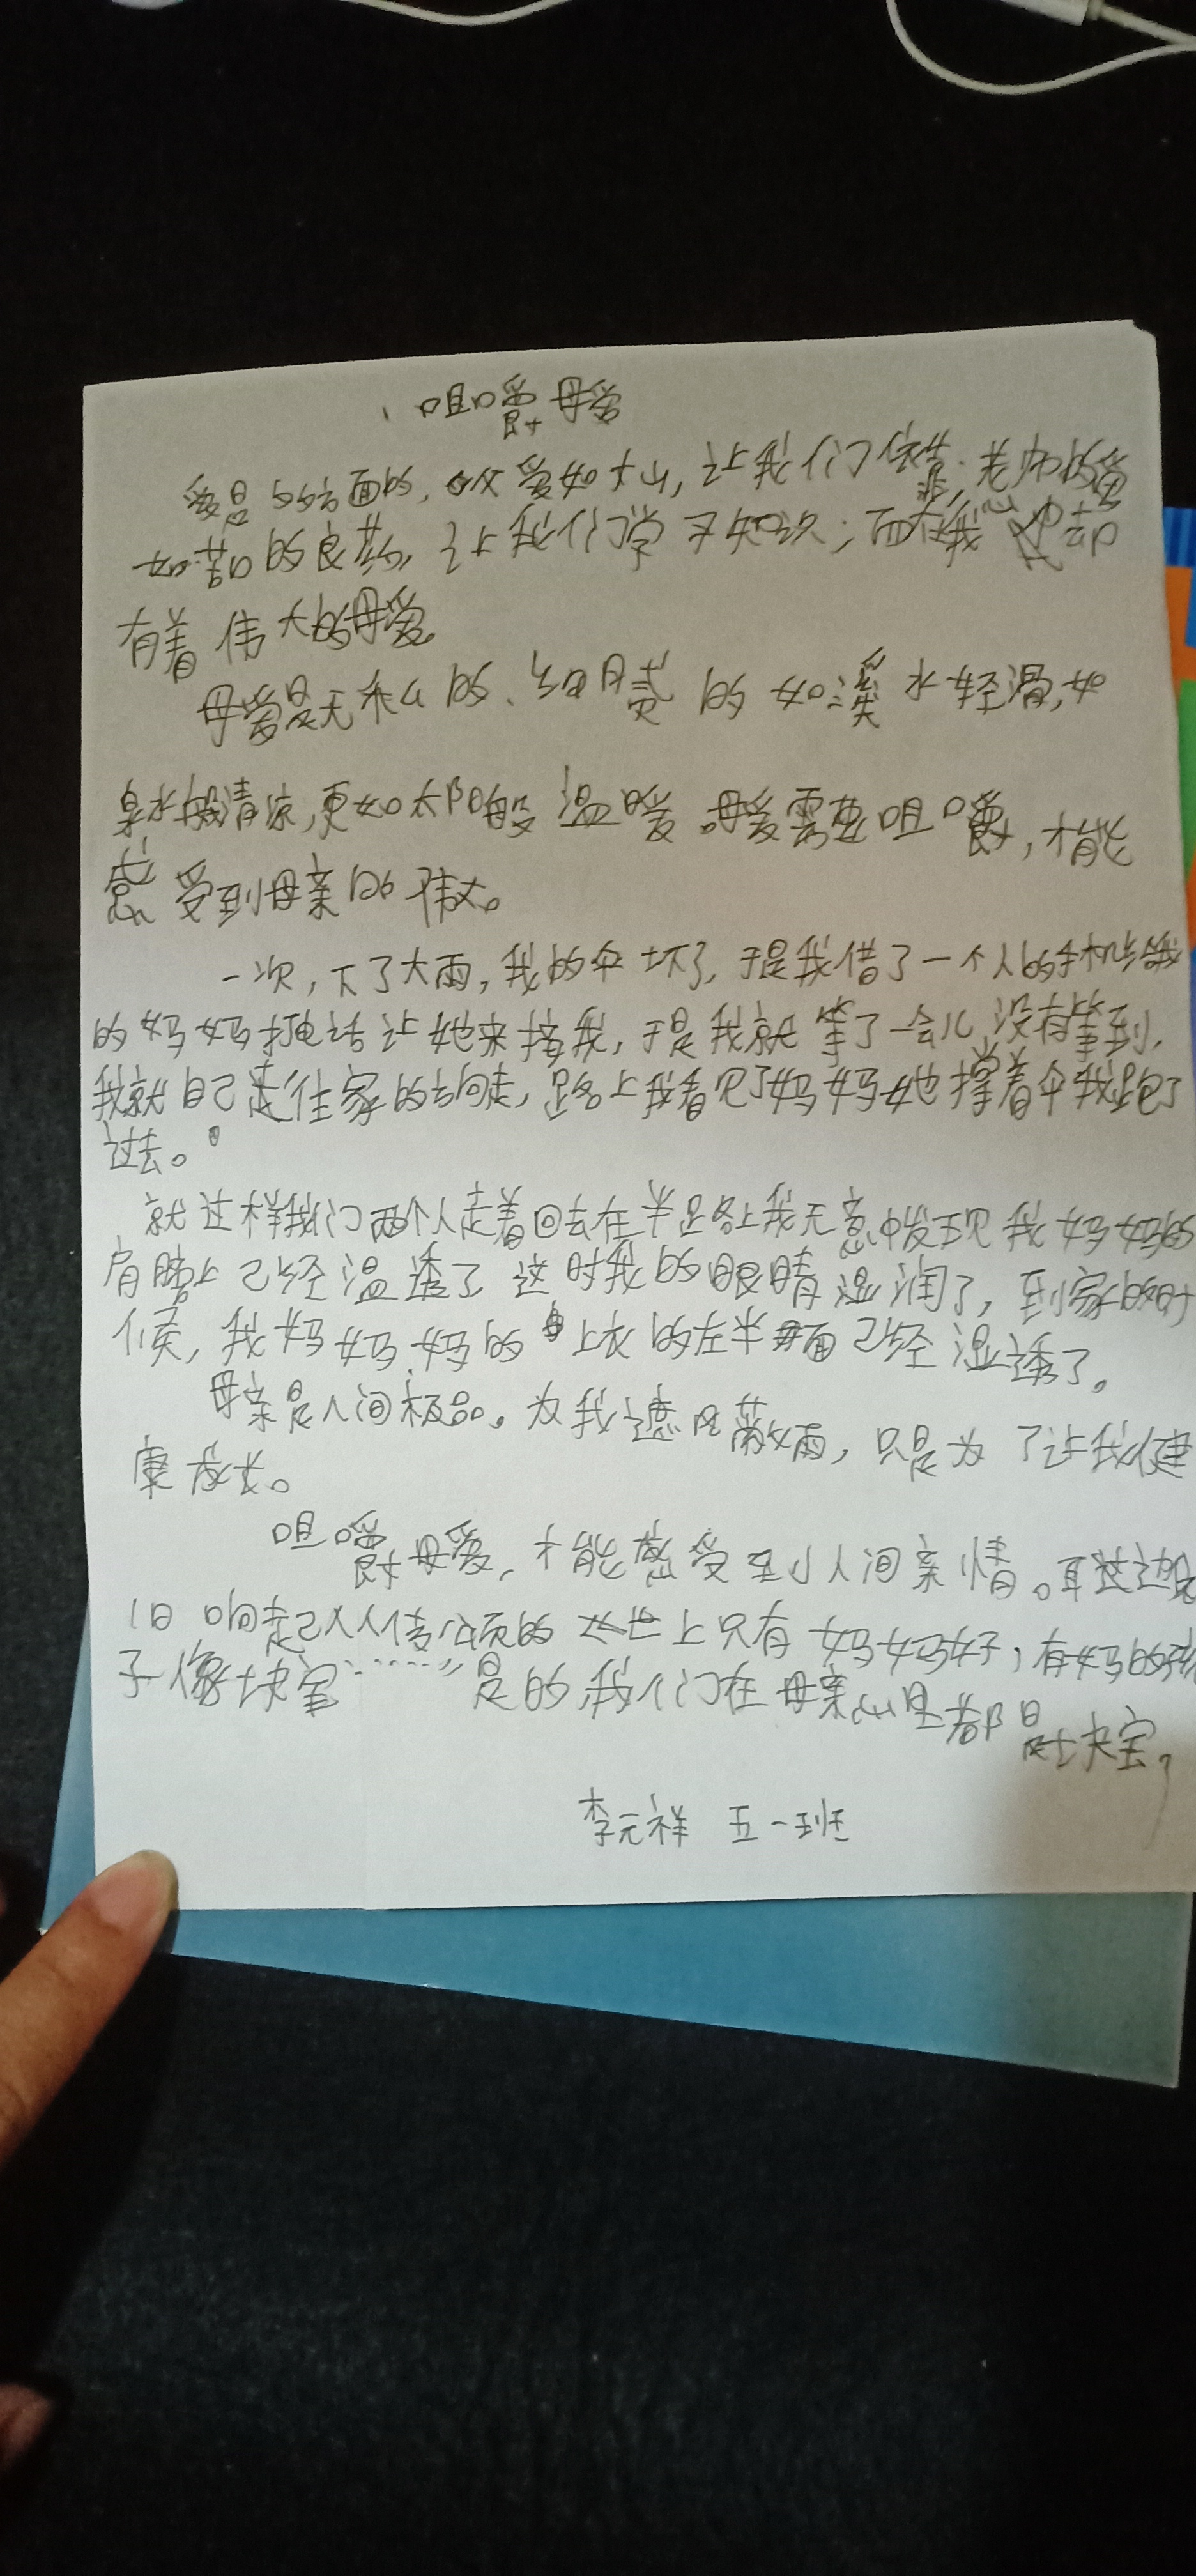 咀嚼母爱
爱是多方面的,父爱如大山,让我们依靠;老师的爱
如苦口的良药,让我们学习知识;而在我心中却
有着伟大的母爱。
母爱是无私的、细腻的如溪水轻滑,如
泉水般清凉,更如太阳般温暖。母爱需要咀嚼,才能
感受到母亲的伟大。
一次,下了大雨,我的伞坏了,于是我借了一个人的手机给我
的妈妈打电话让她来接我,于是我就等了一会儿没有等到,
我就自己走往家的方向走,路上我看见了妈妈她撑着伞我跑了
过去。
就这样我们两个人走着回去在半路上我无意中发现我妈妈的
肩膀上已经温透了这时我的眼睛湿润了,到家的时
候,我妈妈妈的上衣的左半面已经湿透了。
母亲是人间极品。为我遮风蔽雨,只是为了让我健
康成长。
咀嚼母爱,才能感受到人间亲情。耳边
旧响起人人传颂的世上只有妈妈好,有妈的孩
子像块宝……是的,我们在母亲心里都是块宝。
李元祥 五一班